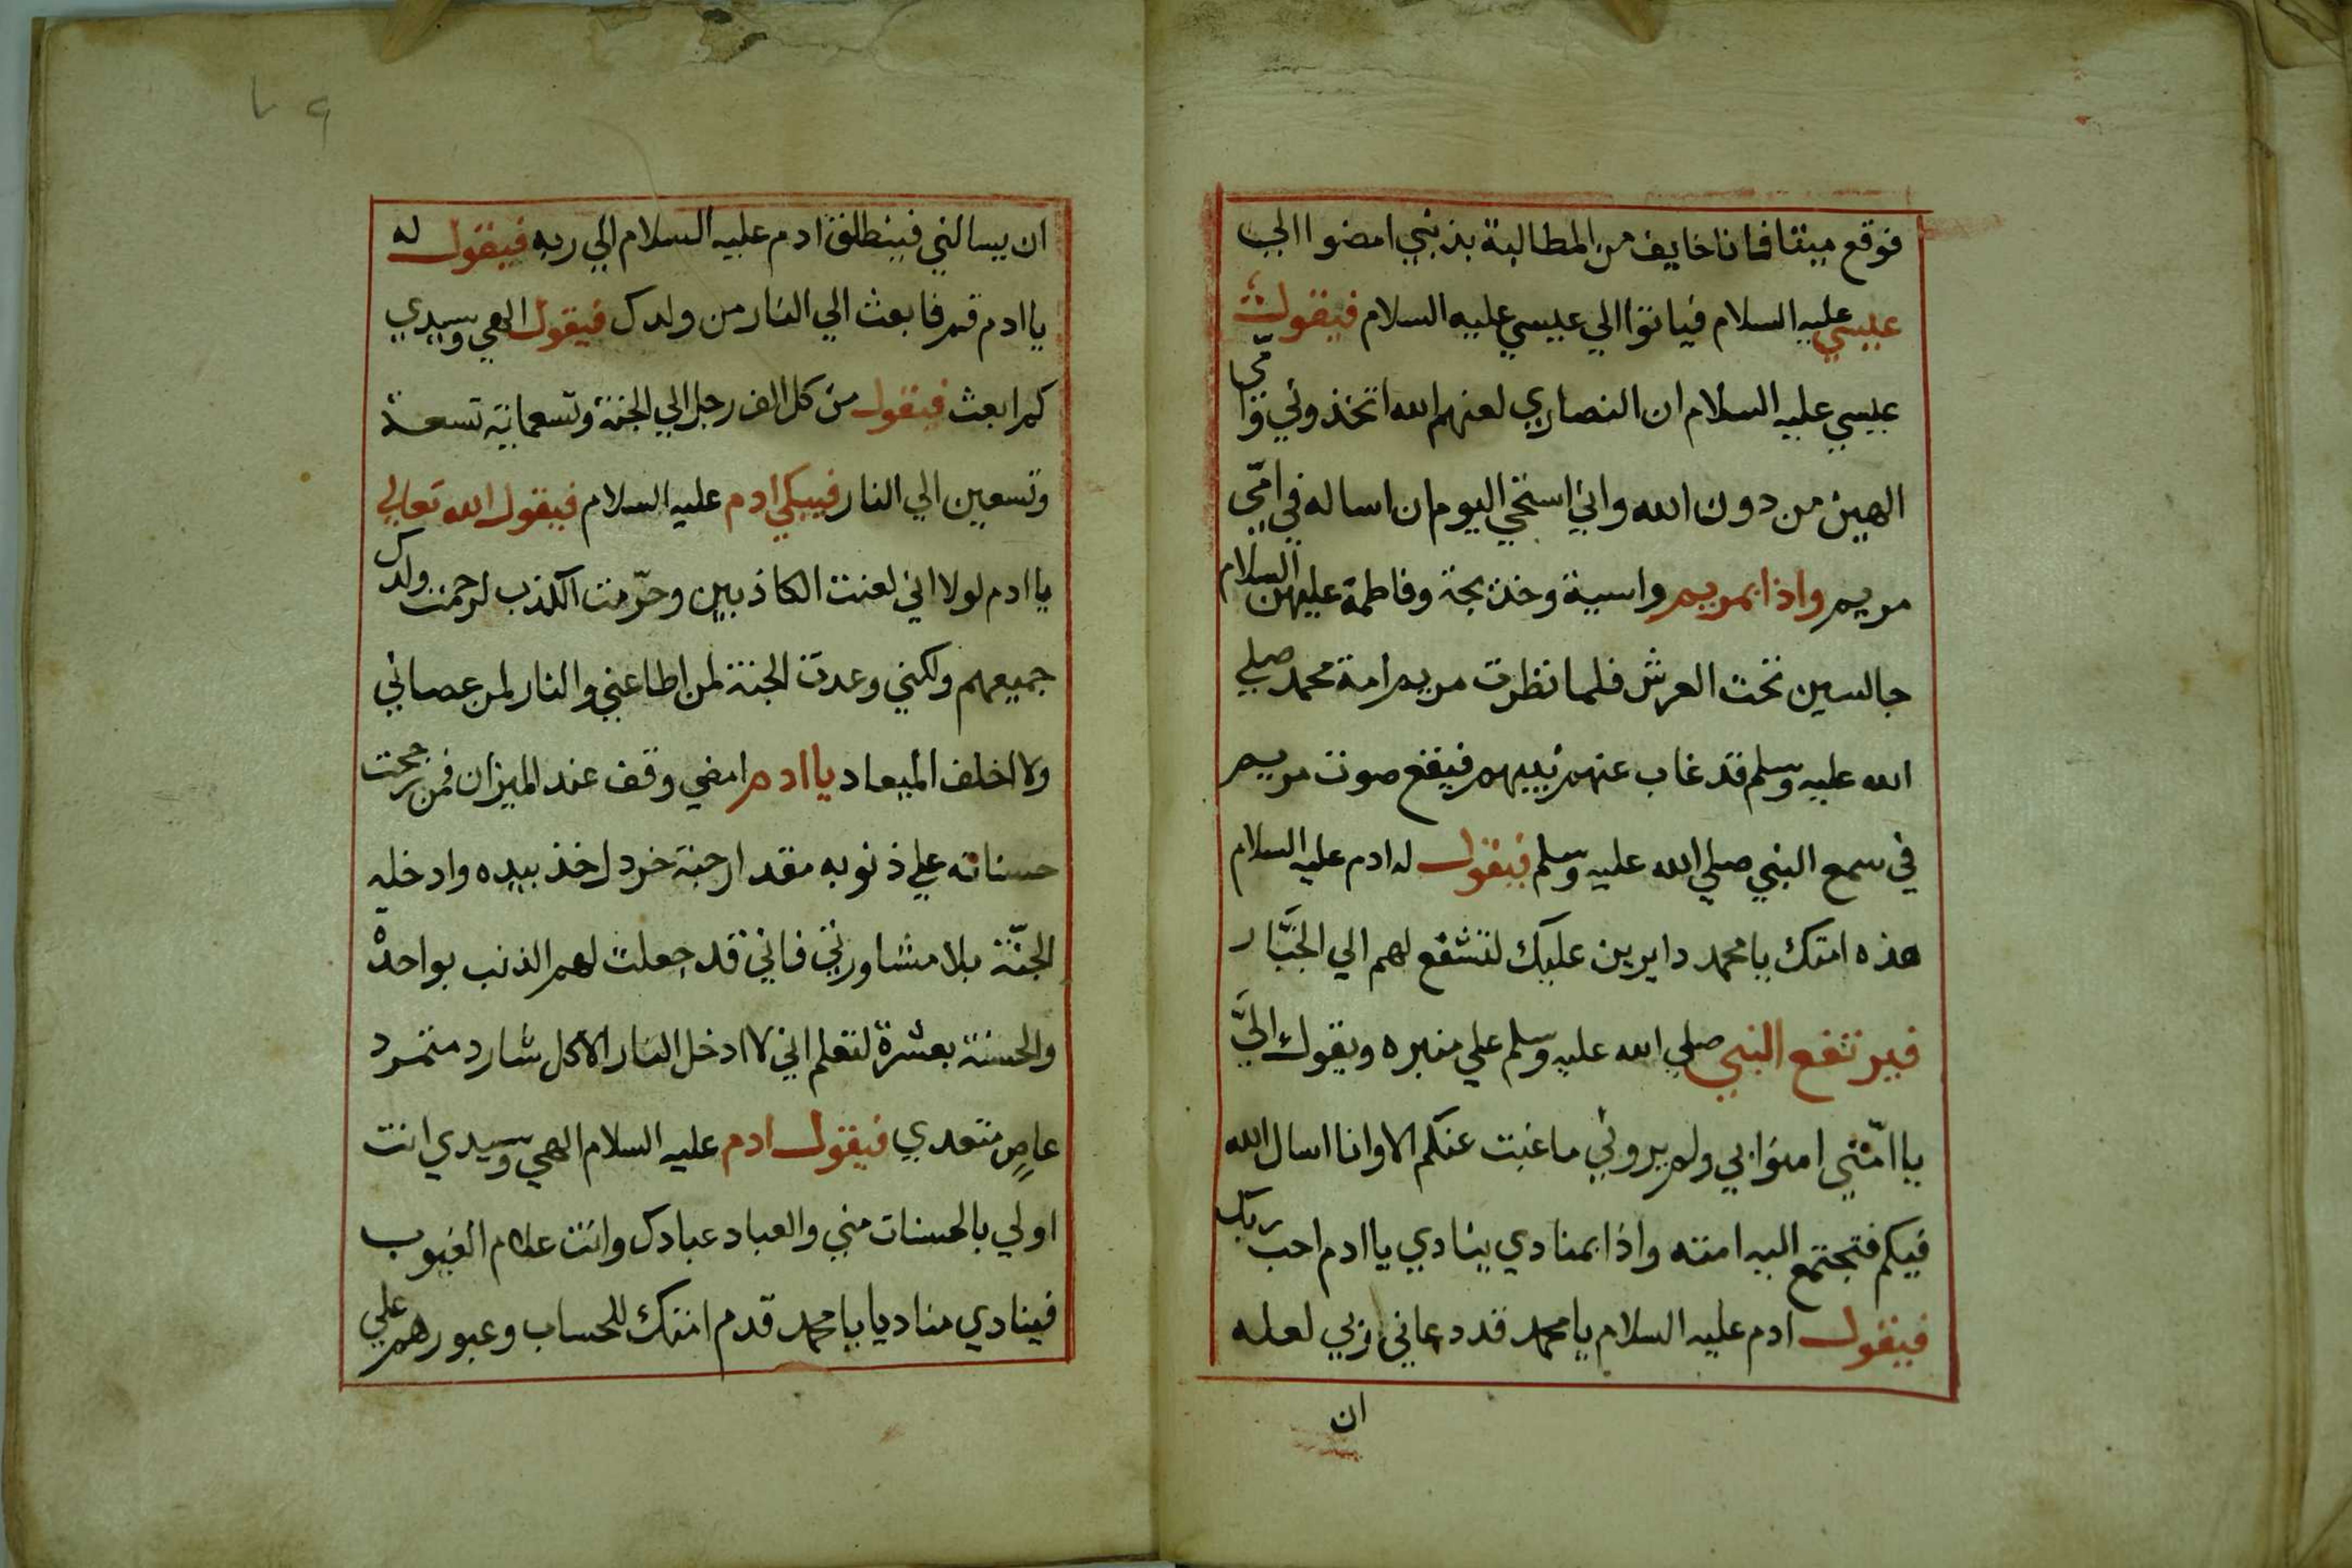 فوقع ميتا فانا خايف من المطالبة بذنبي امضوا الي
عيسي عليه السلام فياتوا الي عيسي عليه السلام فيقول
عيسي عليه السلام ان النصاري لعنهم الله اتخذوني وامّي
الهين من دون الله واني استحي اليوم ان اساله في امّي
مريم واذا بمريم واسية وخديجة وفاطمة عليهن السلام
جالسين تحت العرش فلما نظرت مريم امة محمد صلي
الله عليه وسلم قد غاب عنهم نبيهم فيقع صوت مريم
في سمع النبي صلي الله عليه وسلم فيقول له ادم عليه السلام
هذه امتك يا محمد دايرين عليك لتشفع لهم الي الجبَّار
فيرتفع النبي صلي الله عليه وسلم علي منبره ويقول اليَّ
يا امّتي امنوا بي ولم يروني ما غبت عنكم الا وانا اسال الله
فيكم فتجتمع اليه امته واذا بمنادي ينادي يا ادم احب ربك
فيقول ادم عليه السلام يا محمد قد دعاني ربي لعله
ان
٧٩
ان يسالني فينطلق ادم عليه السلام الي ربه فيقول له
يا ادم قم فابعث الي النار من ولدك فيقول الهي وسيدي
كم ابعث فيقول من كل الف رجل الي الجنة وتسعماية تسعة
وتسعين الي النار فيبكي ادم عليه السلام فيقول الله تعالي
يا ادم لولا اني لعنت الكاذبين وحرّمت الكذب لرحمت ولدك
جميعهم ولكني وعدت الجنة لمن اطاعني والنار لمن عصاني
ولا اخلف الميعاد يا ادم امضي وقف عند الميزان فمن رجحت
حسناته علي ذنوبه مقدار حبة خردل خذ بيده وادخله
الجنّة بلا مشاورتي فاني قد جعلت لهم الذنب بواحدة
والحسنة بعشرة لتعلم اني لا ادخل النار الا كل شارد متمرد
عاصٍ متعدي فيقول ادم عليه السلام الهي وسيدي انت
اولي بالحسنات مني والعباد عبادك وانت علام الغيوب
فينادي مناديا يا محمد قدم امتك للحساب وعبورهم علي